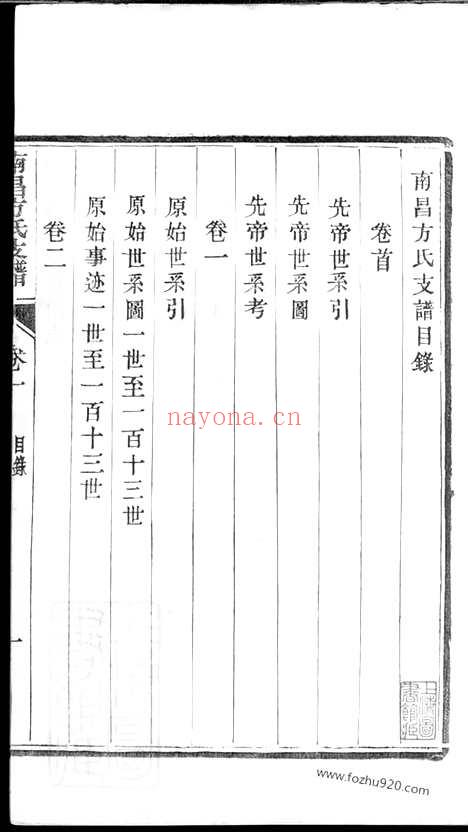 南昌方氏支譜目錄
卷首
先帝世系引
先帝世系圖
先帝世系考
卷一
原始世系引
原始世系圖一世至一百十三世
原始事迹一世至一百十三世
卷二
南昌方氏支譜
卷一
目錄
一
上海圖書館藏
nayona.cn
www.fozhu920.com